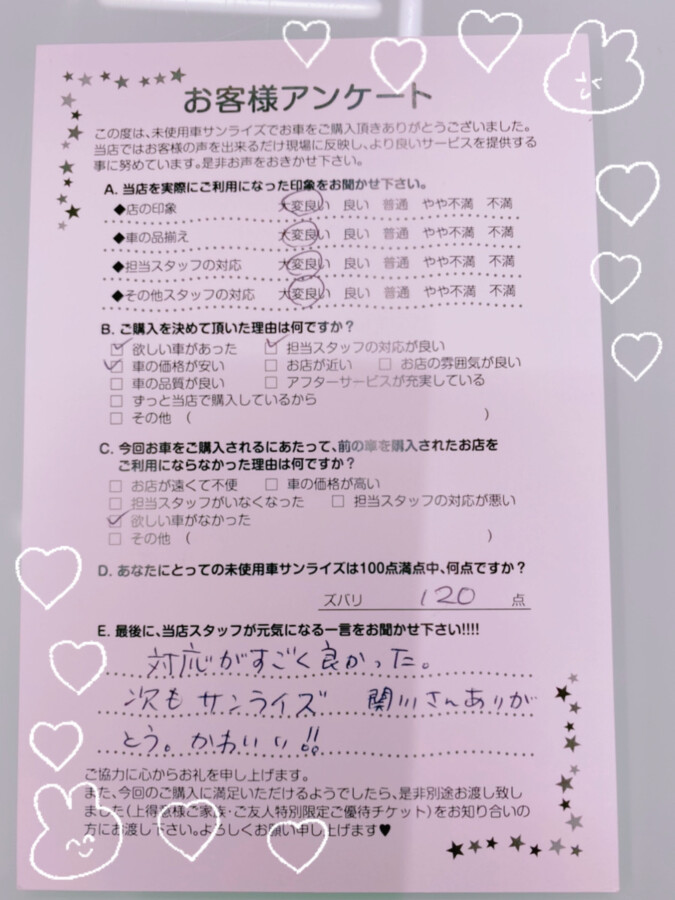 お客様アンケート
この度は、未使用車サンライズでお車をご購入頂きありがとうございました。
当店ではお客様の声を出来るだけ現場に反映し、より良いサービスを提供する
事に努めています。是非お声をおきかせ下さい。
A. 当店を実際にご利用になった印象をお聞かせ下さい。
◆店の印象 大変良い 良い 普通 やや不満 不満
◆車の品揃え 大変良い 良い 普通 やや不満 不満
◆担当スタッフの対応 大変良い 良い 普通 やや不満 不満
◆その他スタッフの対応 大変良い 良い 普通 やや不満 不満
B. ご購入を決めて頂いた理由は何ですか？
☑ 欲しい車があった ☑ 担当スタッフの対応が良い
☑ 車の価格が安い □ お店が近い □ お店の雰囲気が良い
□ 車の品質が良い □ アフターサービスが充実している
□ ずっと当店で購入しているから
□ その他（ ）
C. 今回お車をご購入されるにあたって、前の車を購入されたお店を
ご利用にならなかった理由は何ですか？
□ お店が遠くて不便 □ 車の価格が高い
□ 担当スタッフがいなくなった □ 担当スタッフの対応が悪い
☑ 欲しい車がなかった
□ その他（ ）
D. あなたにとっての未使用車サンライズは100点満点中、何点ですか？
ズバリ 120 点
E. 最後に、当店スタッフが元気になる一言をお聞かせ下さい!!!!
対応がすごく良かった。
次もサンライズ 関川さんありが
とう。かわいい!!
ご協力に心からお礼を申し上げます。
また、今回のご購入に満足いただけるようでしたら、是非別途お渡し致し
ました（上得意様ご家族・ご友人特別限定ご優待チケット）をお知り合いの
方にお渡し下さい。よろしくお願い申し上げます♥